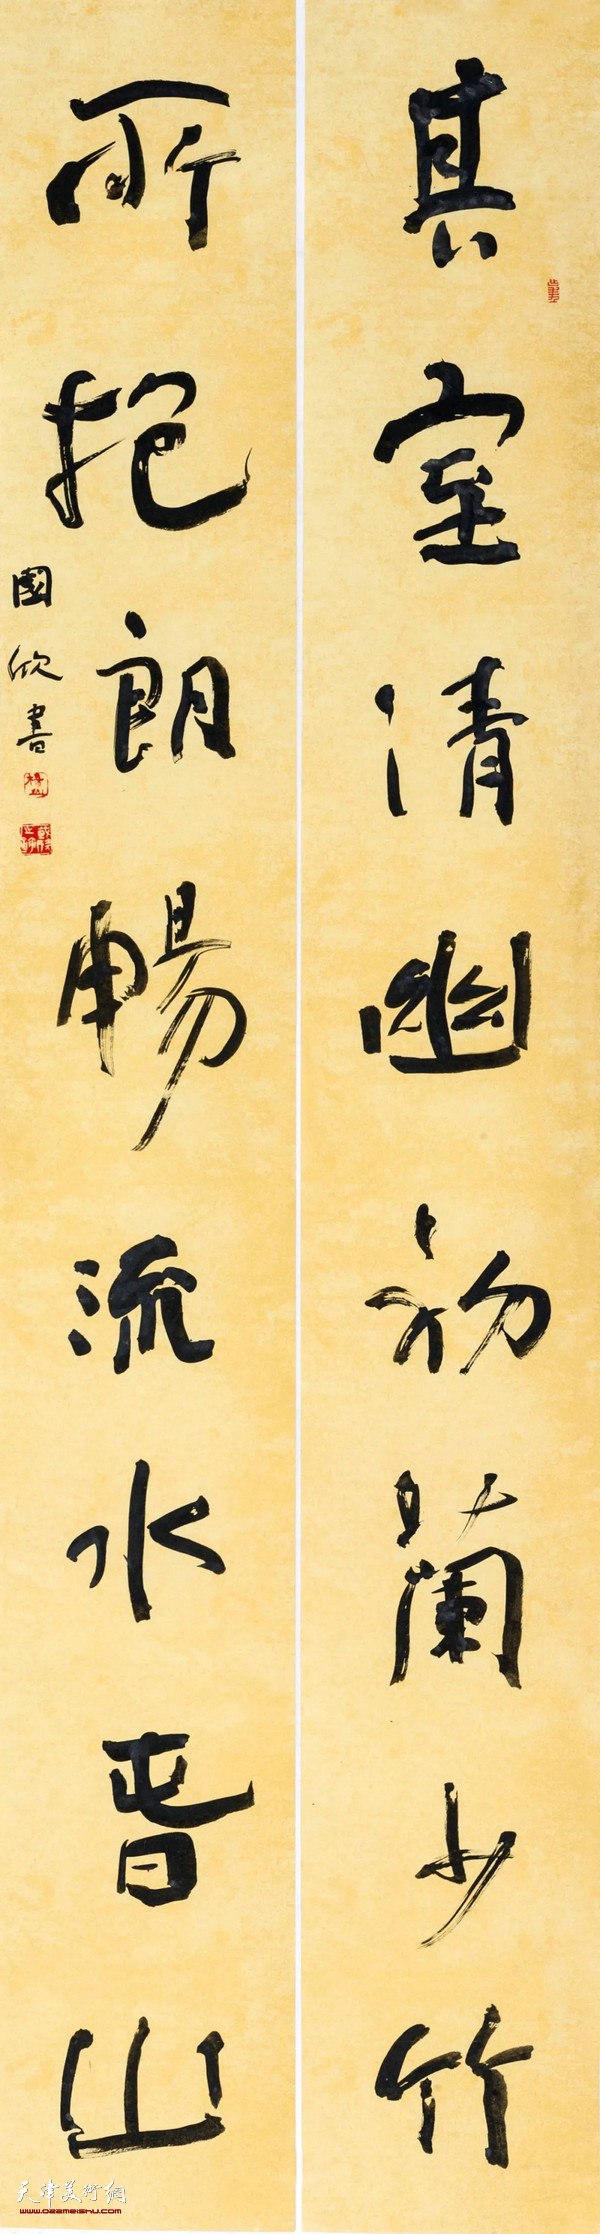 其室清幽初蘭少竹
所抱朗暢流水春山
國欣書
天津美術網
www.022meishu.com